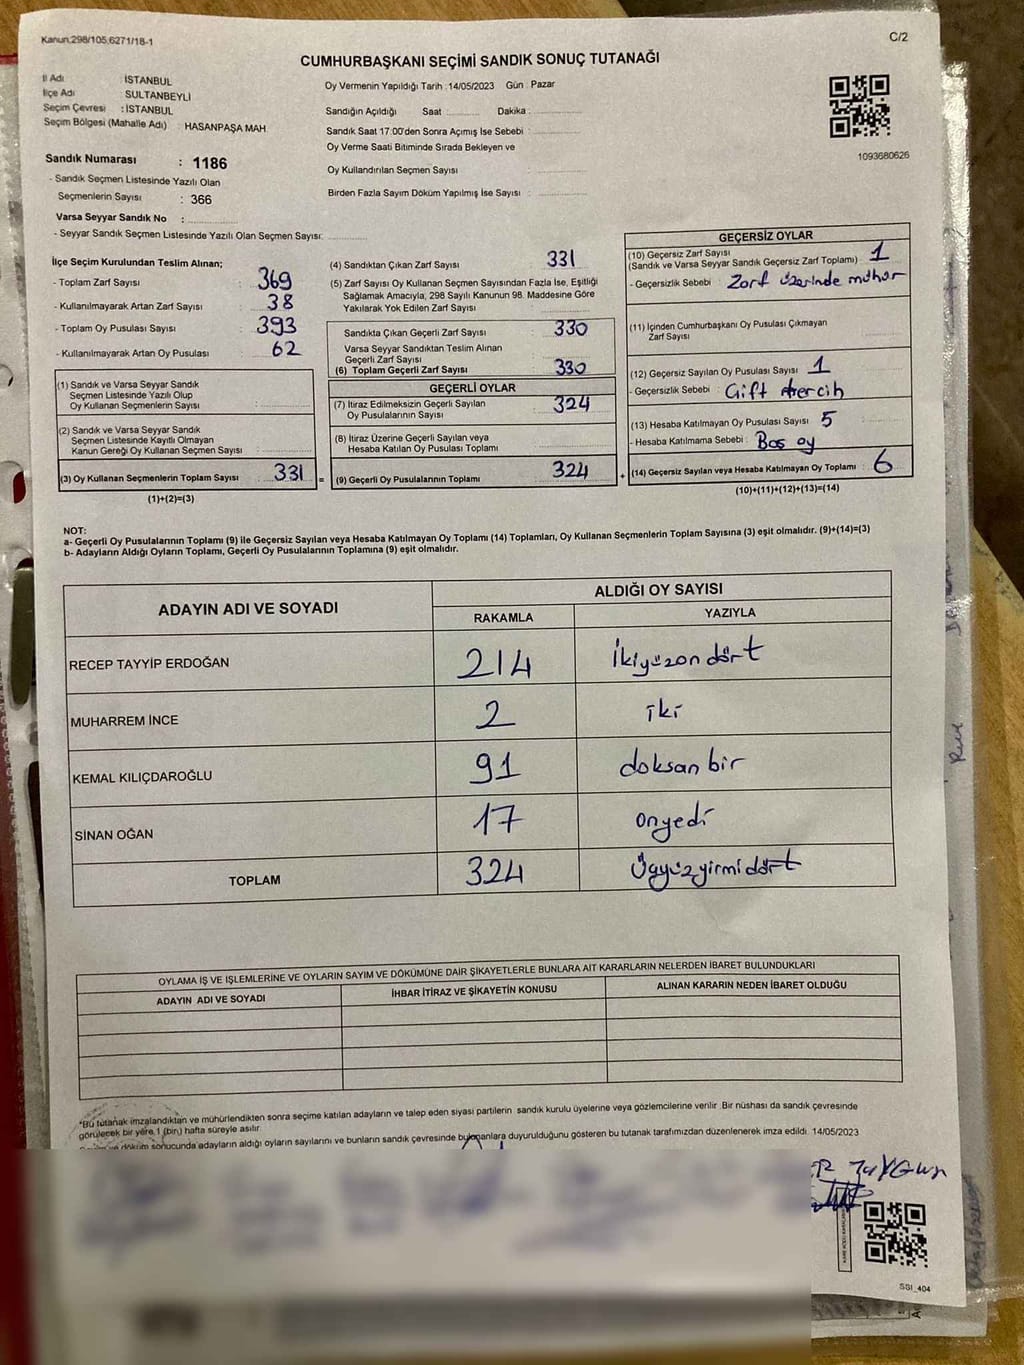 Kanun;298/105,6271/18-1
C/2
CUMHURBAŞKANI SEÇİMİ SANDIK SONUÇ TUTANAĞI
İl Adı İSTANBUL
İlçe Adı : SULTANBEYLİ
Seçim Çevresi : İSTANBUL
Seçim Bölgesi (Mahalle Adı) : HASANPAŞA MAH
Oy Vermenin Yapıldığı Tarih : 14/05/2023 Gün : Pazar
Sandığın Açıldığı Saat Dakika :
Sandık Saat 17:00'den Sonra Açımış İse Sebebi :
Oy Verme Saati Bitiminde Sırada Bekleyen ve
Oy Kullandırılan Seçmen Sayısı :
Birden Fazla Sayım Döküm Yapılmış İse Sayısı :
1093680626
Sandık Numarası : 1186
- Sandık Seçmen Listesinde Yazılı Olan
Seçmenlerin Sayısı : 366
Varsa Seyyar Sandık No :
- Seyyar Sandık Seçmen Listesinde Yazılı Olan Seçmen Sayısı:
İlçe Seçim Kurulundan Teslim Alınan;
- Toplam Zarf Sayısı : 369
- Kullanılmayarak Artan Zarf Sayısı : 38
- Toplam Oy Pusulası Sayısı : 393
- Kullanılmayarak Artan Oy Pusulası : 62
(1) Sandık ve Varsa Seyyar Sandık
Seçmen Listesinde Yazılı Olup
Oy Kullanan Seçmenlerin Sayısı :
(2) Sandık ve Varsa Seyyar Sandık
Seçmen Listesinde Kayıtlı Olmayan
Kanun Gereği Oy Kullanan Seçmen Sayısı :
(3) Oy Kullanan Seçmenlerin Toplam Sayısı : 331 =
(1)+(2)=(3)
(4) Sandıktan Çıkan Zarf Sayısı : 331
(5) Zarf Sayısı Oy Kullanan Seçmen Sayısından Fazla İse, Eşitliği
Sağlamak Amacıyla, 298 Sayılı Kanunun 98. Maddesine Göre
Yakılarak Yok Edilen Zarf Sayısı :
Sandıkta Çıkan Geçerli Zarf Sayısı : 330
Varsa Seyyar Sandıktan Teslim Alınan
Geçerli Zarf Sayısı :
(6) Toplam Geçerli Zarf Sayısı : 330
GEÇERLİ OYLAR
(7) İtiraz Edilmeksizin Geçerli Sayılan
Oy Pusulalarının Sayısı : 324
(8) İtiraz Üzerine Geçerli Sayılan veya
Hesaba Katılan Oy Pusulası Toplamı :
(9) Geçerli Oy Pusulalarının Toplamı : 324 +
GEÇERSİZ OYLAR
(10) Geçersiz Zarf Sayısı
(Sandık ve Varsa Seyyar Sandık Geçersiz Zarf Toplamı) : 1
- Geçersizlik Sebebi : Zarf üzerinde mühür
(11) İçinden Cumhurbaşkanı Oy Pusulası Çıkmayan
Zarf Sayısı :
(12) Geçersiz Sayılan Oy Pusulası Sayısı : 1
- Geçersizlik Sebebi : Çift tercih
(13) Hesaba Katılmayan Oy Pusulası Sayısı : 5
- Hesaba Katılmama Sebebi : Boş oy
(14) Geçersiz Sayılan veya Hesaba Katılmayan Oy Toplamı : 6
(10)+(11)+(12)+(13)=(14)
NOT:
a- Geçerli Oy Pusulalarının Toplamı (9) ile Geçersiz Sayılan veya Hesaba Katılmayan Oy Toplamı (14) Toplamları, Oy Kullanan Seçmenlerin Toplam Sayısına (3) eşit olmalıdır. (9)+(14)=(3)
b- Adayların Aldığı Oyların Toplamı, Geçerli Oy Pusulalarının Toplamına (9) eşit olmalıdır.
ADAYIN ADI VE SOYADI
ALDIĞI OY SAYISI
RAKAMLA YAZIYLA
RECEP TAYYİP ERDOĞAN 214 İkiyüzondört
MUHARREM İNCE 2 iki
KEMAL KILIÇDAROĞLU 91 doksanbir
SİNAN OĞAN 17 onyedi
TOPLAM 324 Üçyüzyirmidört
OYLAMA İŞ VE İŞLEMLERİNE VE OYLARIN SAYIM VE DÖKÜMÜNE DAİR ŞİKAYETLERLE BUNLARA AİT KARARLARIN NELERDEN İBARET BULUNDUKLARI
ADAYIN ADI VE SOYADI İHBAR İTİRAZ VE ŞİKAYETİN KONUSU ALINAN KARARIN NEDEN İBARET OLDUĞU
*Bu tutanak imzalandıktan ve mühürlendikten sonra seçime katılan adayların ve talep eden siyasi partilerin sandık kurulu üyelerine veya gözlemcilerine verilir. Bir nüshası da sandık çevresinde
görülecek bir yere 1 (bir) hafta süreyle asılır.
ve döküm sonucunda adayların aldığı oyların sayılarını ve bunların sandık çevresinde bulunanlara duyurulduğunu gösteren bu tutanak tarafımızdan düzenlenerek imza edildi. 14/05/2023
SSI_404